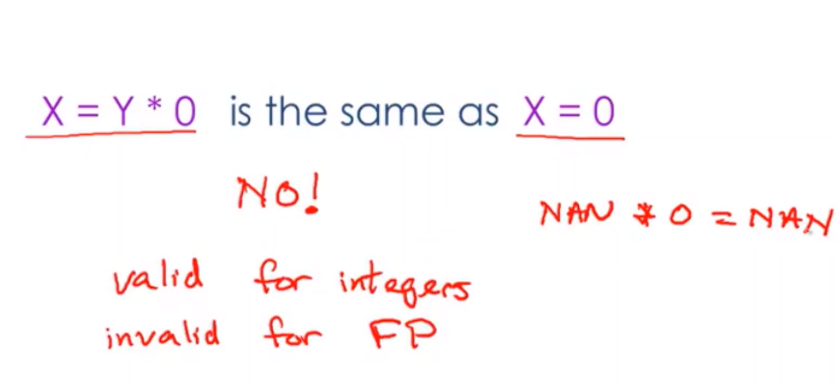 X = Y * 0 is the same as X = 0
NO!
NAN * 0 = NAN
valid for integers
invalid for FP